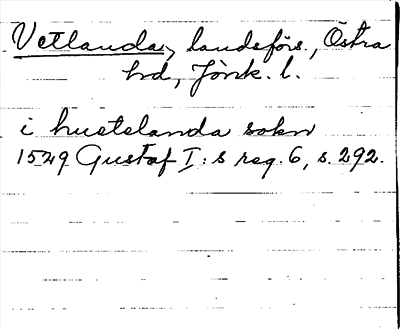 Vetlanda, landsförs., Östra
hd, Jönk. l.
i huetelanda sokn
1529 Gustaf I:s reg. 6, s. 292.